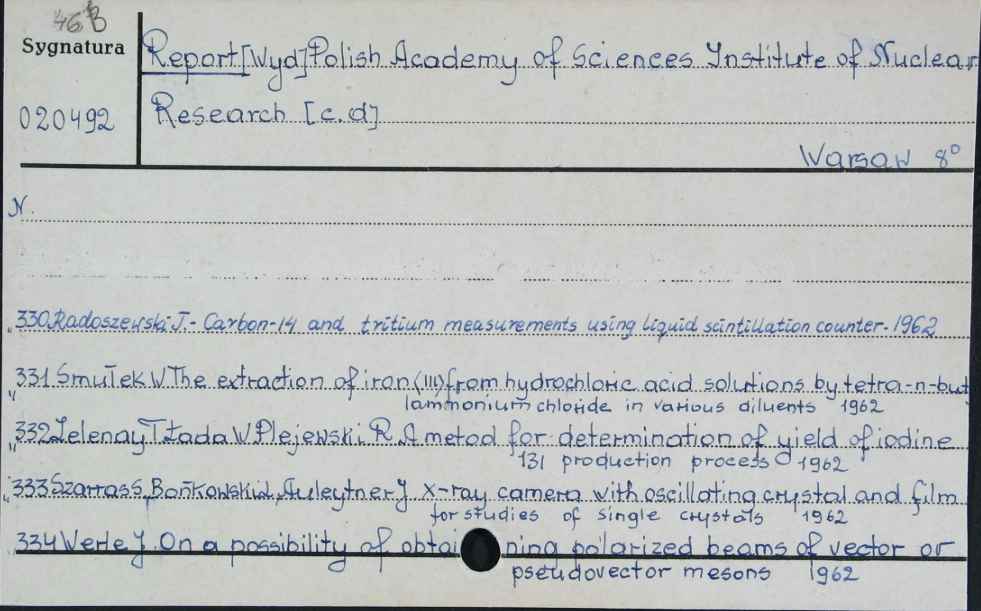 46B
Sygnatura
020492
Report [Wyd] Polish Academy of Sciences Institute of Nuclear
Research [c.d]
Warsaw 8°
N.
„ 330 Radoszewski J. - Carbon-14 and tritium measurements using liquid scintillation counter - 1962
„ 331 Smułek W The extraction of iron (III) from hydrochloric acid solutions by tetra-n-but
lammonium chloride in various diluents 1962
„ 332 Zelenay T Łada W. Plejewski R. A metod for determination of yield of iodine
131 production process 1962
„ 333 Szarras S, Bońkowski J, Auleytner J x-ray camera with oscillating crystal and film
for studies of single crystals 1962
334 Werle J. On a possibility of obtaining polarized beams of vector or
pseudovector mesons 1962